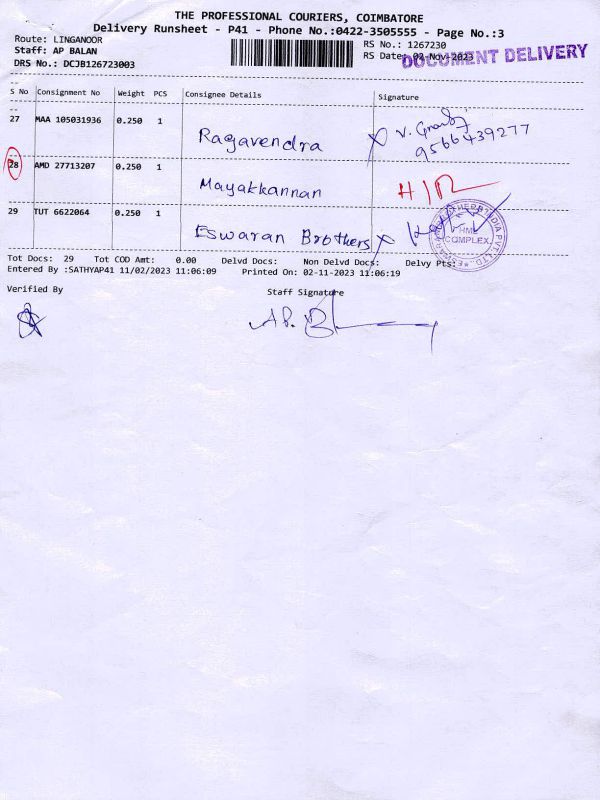 THE PROFESSIONAL COURIERS, COIMBATORE
Delivery Runsheet - P41 - Phone No.:0422-3505555 - Page No.:3
Route: LINGANOOR
Staff: AP BALAN
DRS No.: DCJB126723003
RS No.: 1267230
RS Date: 02-Nov-2023
DOCUMENT DELIVERY
S No Consignment No Weight PCS Consignee Details Signature
27 MAA 105031936 0.250 1 Ragavendra
9566439277
28 AMD 27713207 0.250 1 Mayakkannan
29 TUT 6622064 0.250 1 Eswaran Brothers
HMT
COMPLEX
Tot Docs: 29 Tot COD Amt: 0.00 Delvd Docs: Non Delvd Docs: Delvy Pts:
Entered By :SATHYAP41 11/02/2023 11:06:09 Printed On: 02-11-2023 11:06:19
Verified By Staff Signature